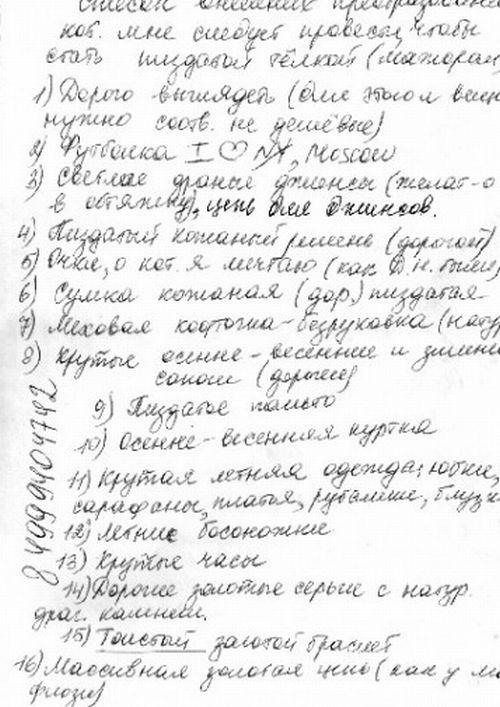 Список внешних преобразован
кот. мне следует провести, чтобы
стать пиздатой тёлкой (мажоркой
1) Дорого выглядеть (для этого вещи
нужно соотв. не дешёвые)
2) Футболка I ♡ NY, Moscow
3) Светлые драные джинсы (желат-о
в обтяжку), цепь для джинсов.
4) Пиздатый кожаный ремень (дорогой)
5) Очки, о кот. я мечтаю (как
6) Сумка кожаная (дор.) пиздатая
7) Меховая кофточка-безрукавка (натур
8) Крутые осенне-весенние и зимни
сапоги (дорогие)
9) Пиздатое пальто
10) Осенне-весенняя куртка
11) Крутая летняя одежда: юбки,
сарафаны, платья, рубашки, блузки
12) Летние босоножки
13) Крутые часы
14) Дорогие золотые серьги с натур.
драг. камнями.
15) Толстый золотой браслет
16) Массивная золотая цепь (как у
84999404742